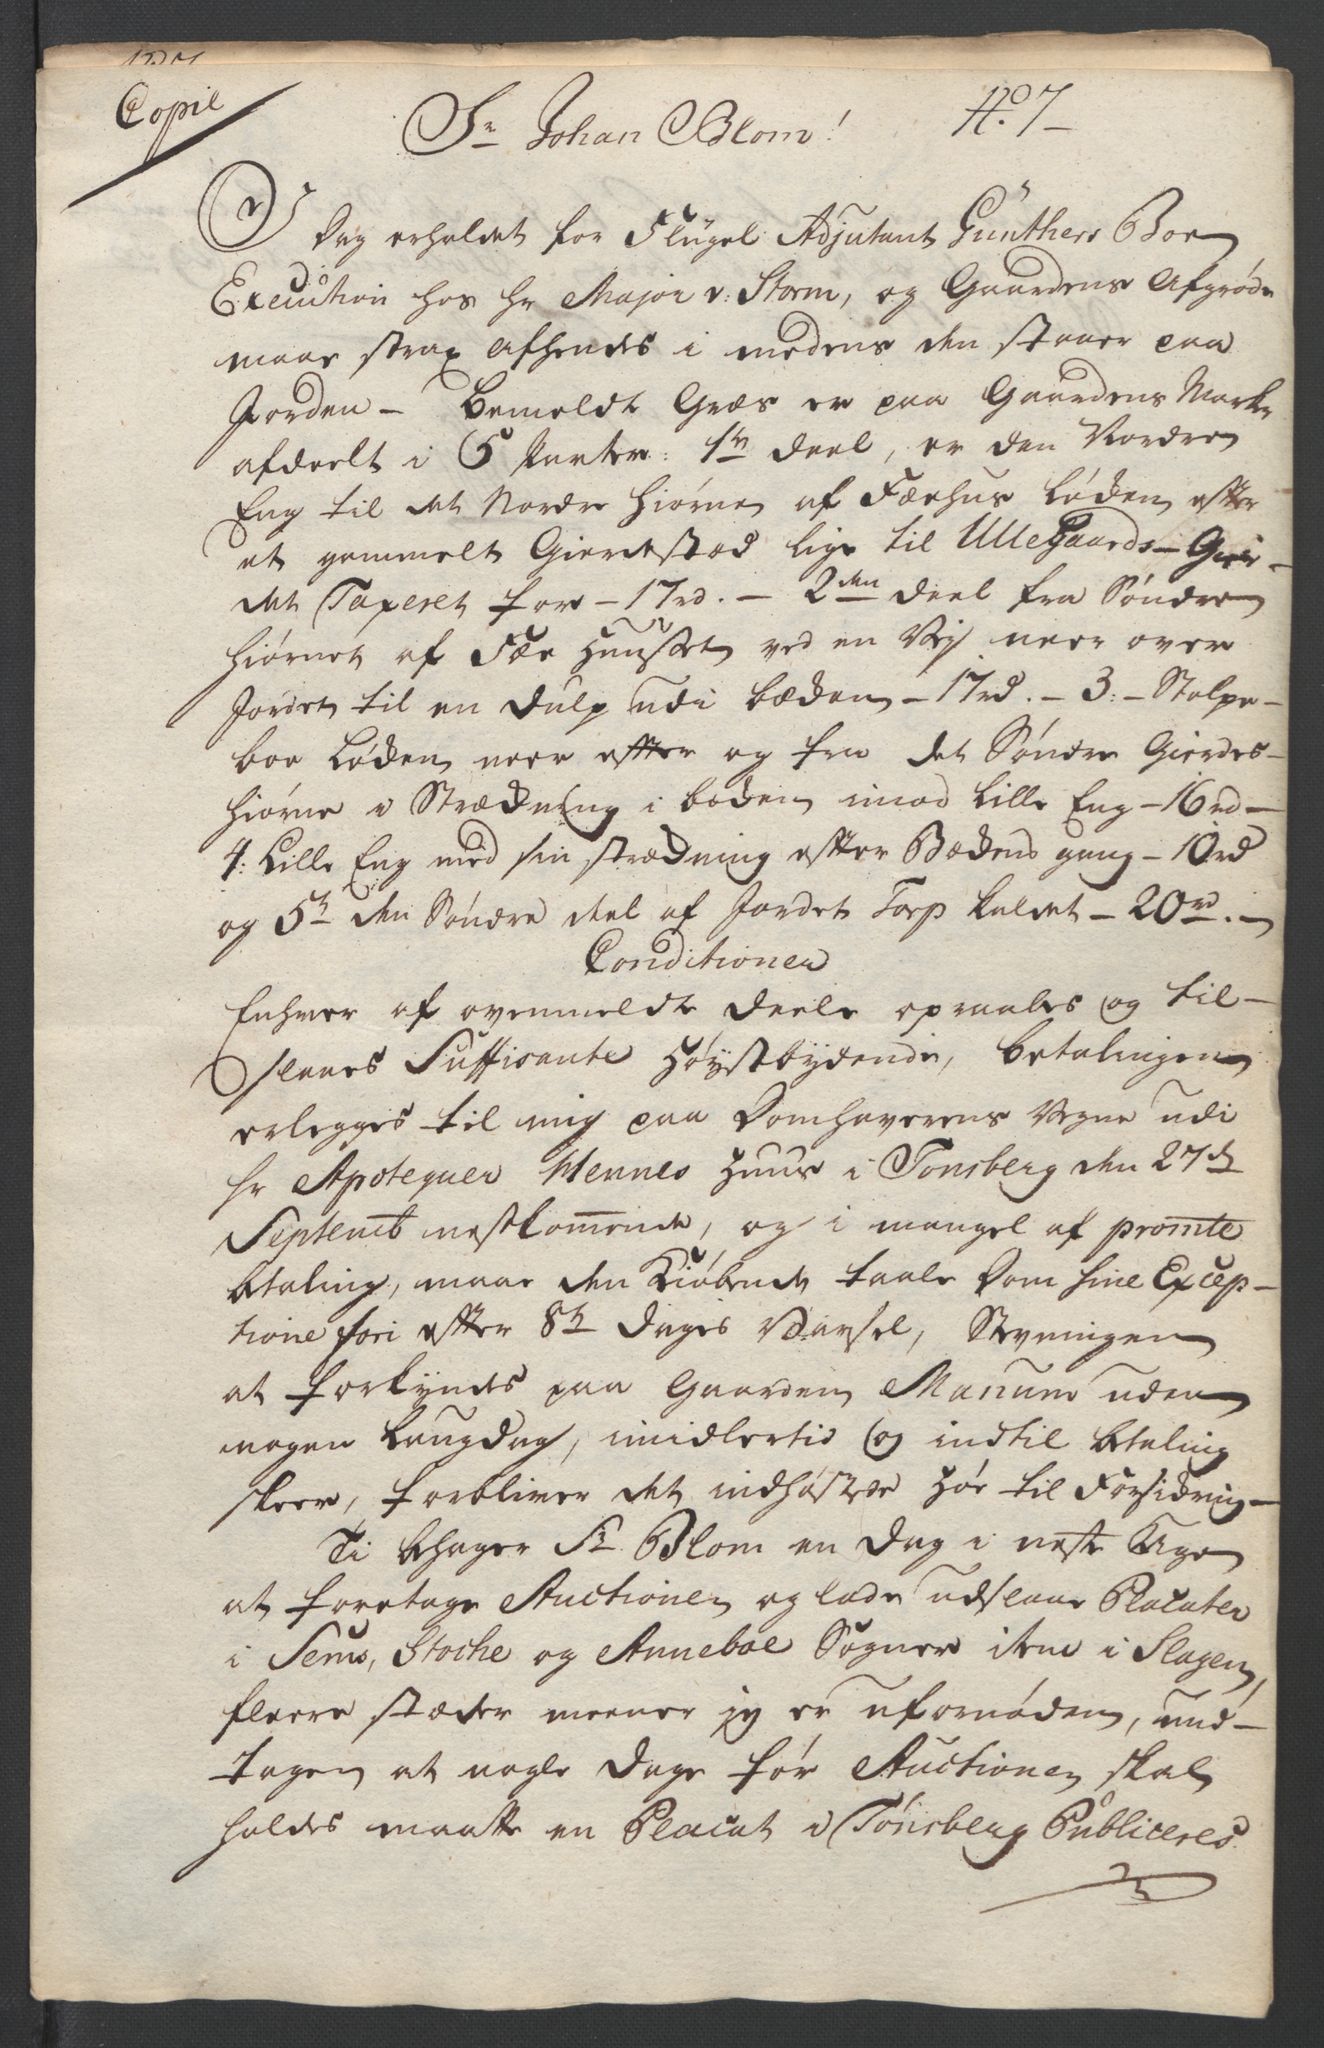 Copie
Sr Johan Blom! No. 7
I Dag erholdet for Flügel Adjutant Günthers Boe
Execution hos hr Major v: Storm, og Gaardens Afgrøde
maae strax afhendes i medens den staaer paa
Jorden - bemeldte Græs er paa Gaardens Marke
afdeelt i 5 Parter: 1te deel, er den Nordre
Eng til det Nordre hiørne af Fæehus Løden efter
et gammelt Gierdestæd lige til Ullegaards-Gier-
det Taxeret for - 17rd. - 2den deel fra Søndre
hiørnet af Fæe Huuset ved en Vej neer over
Jordet til en Dulp udi bæcken - 17rd. - 3: - Stolpe-
boe Løden neer efter og fra det Søndre Gierdes-
hiørne i Strædning i boden imod Lille Eng - 16rd -
4: Lille Eng med sin strædning efter Bækens gang - 10rd
og 5te den Søndre deel af Jordet Torp kaldet - 20rd. -
Conditioner
Enhver af ovenmeldte deele opraabes og til-
slaaes Suffisante Høystbydende, betalingen
erlegges til mig paa Domhaverens Vegne udi
hr Apotequer Mennes Huus i Tonsberg den 27de
Septemb nestkommende, og i mangel af promte
btaling, maae den Kiøbende taale Dom sine Excep-
tione fori efter 8te Dages Varsel, Stevningen
at forkyndes paa Gaarden Manum uden
nogen Laugdag, imidlertid og indtil btaling
skeer, forbliver det indhøstede Høe til Forsikring -
Ti bhager Sr. Blom en Dag i neste Uge
at foretage Auctionen og lade udslaae Placater
i Sems, Stocke og Anneboe Sogner item i Slagen,
fleere stæder meener jeg er ufornøden, und-
tagen at nogle Dage før Auctionen skal
holdes maatte en Placat i Tønsberg Publiceres